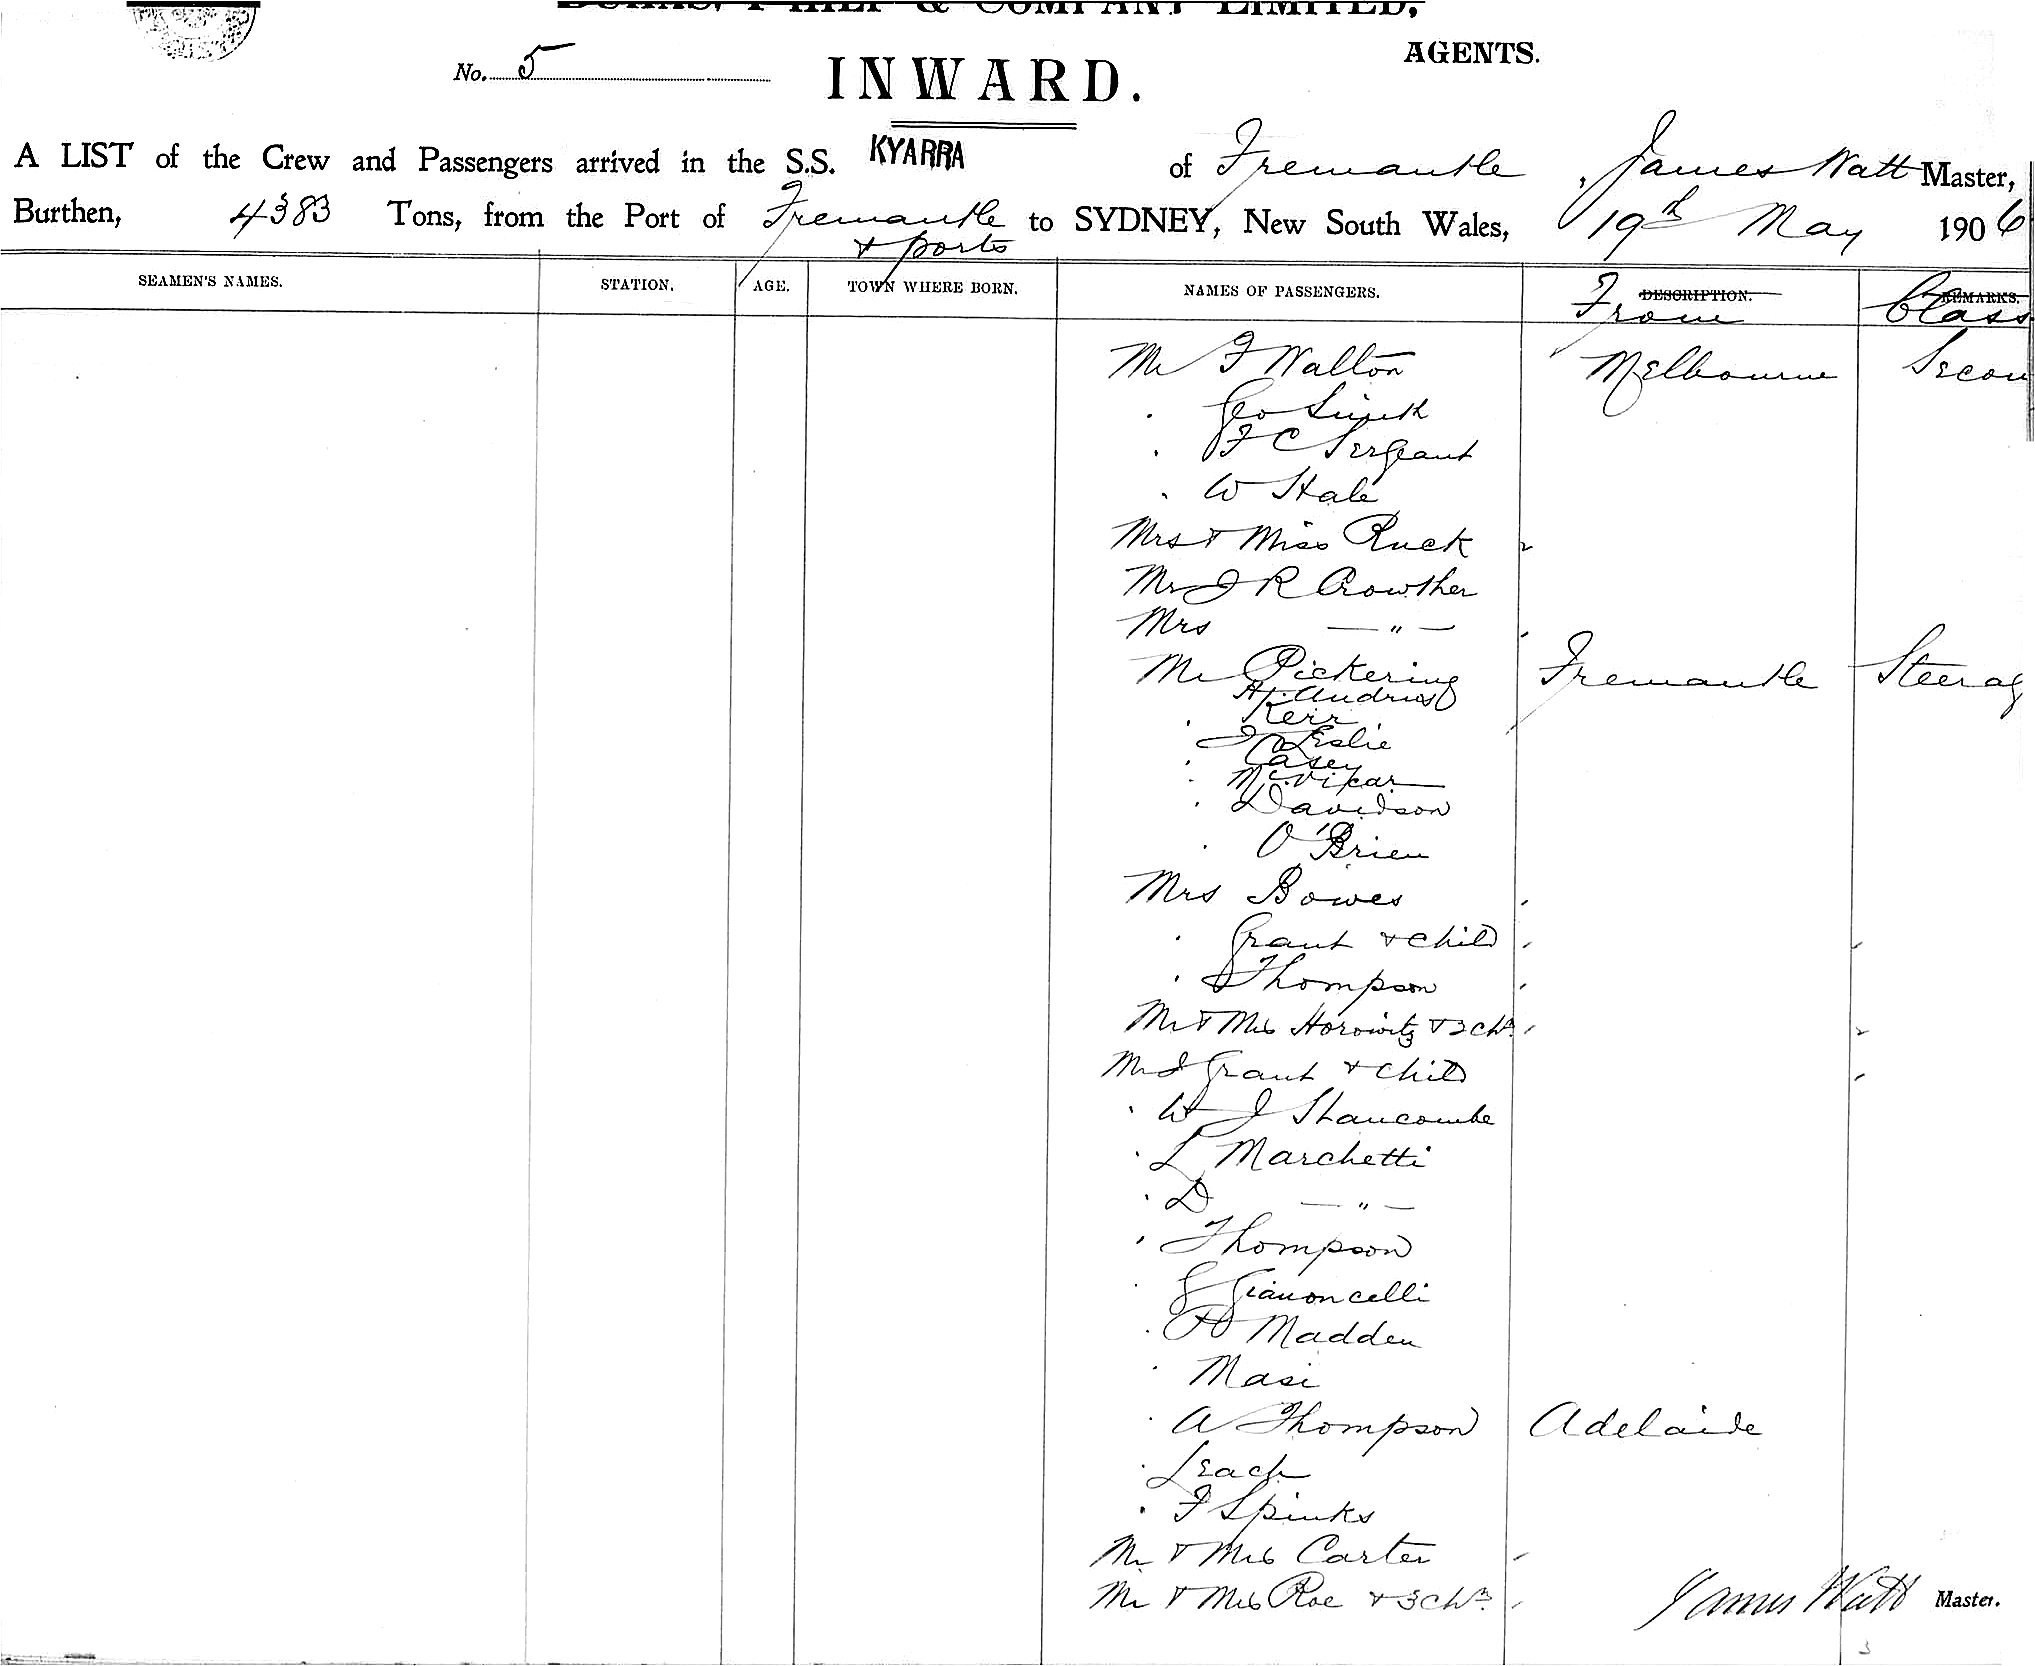 BURNS, PHILP & COMPANY LIMITED,
AGENTS.
No. 5
INWARD.
A LIST of the Crew and Passengers arrived in the S.S. KYARRA of Fremantle, James Watt Master,
Burthen, 4383 Tons, from the Port of Fremantle to SYDNEY, New South Wales, 19th May 1906
& ports
SEAMEN'S NAMES. STATION. AGE. TOWN WHERE BORN. NAMES OF PASSENGERS. DESCRIPTION. REMARKS.
From Class
Mr F Walton Melbourne Secon
. Geo Smith
. F C Sergeant
. W Hale
Mrs & Miss Ruck
Mr J R Crowther
Mrs — " —
Mr Pickering Fremantle Steerag
Andrews
. Kerr
J Leslie
. Casey
. McVicar
. Davidson
. O'Brien
Mrs Bowes
. Grant & child
. Thompson
Mr & Mrs Horowitz & 2 chn
Mr J Grant & child
. W J Stancombe
. L Marchetti
. D — " —
. Thompson
. G Gianoncelli
. Madden
. Masi
. A Thompson Adelaide
. Leach
. F Spinks
Mr & Mrs Carter
Mr & Mrs Roe & 3 chn
James Watt Master.
3